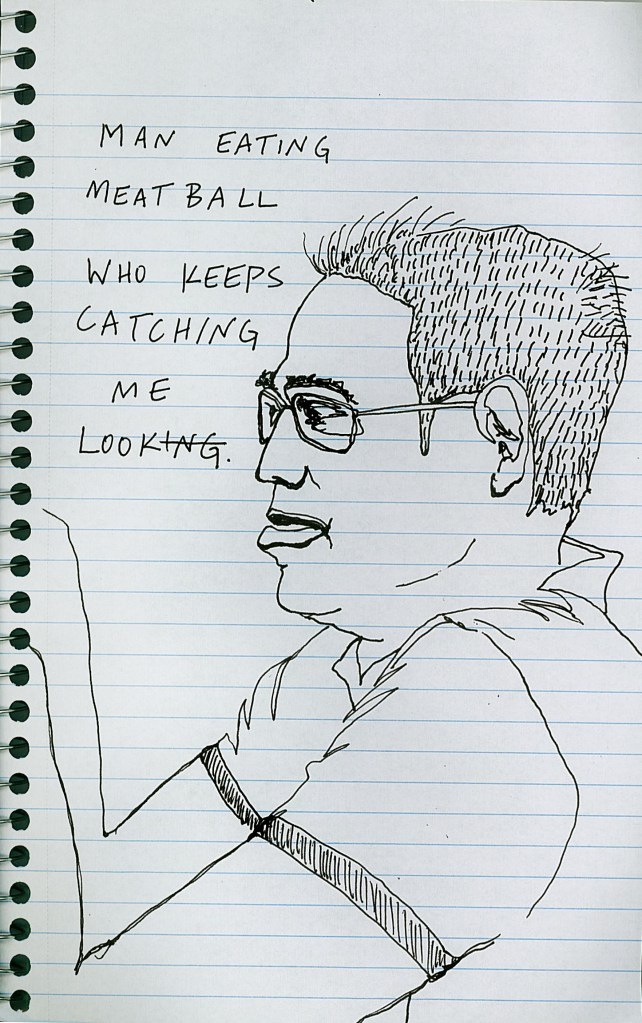 MAN EATING
MEATBALL
WHO KEEPS
CATCHING
ME
LOOKING.